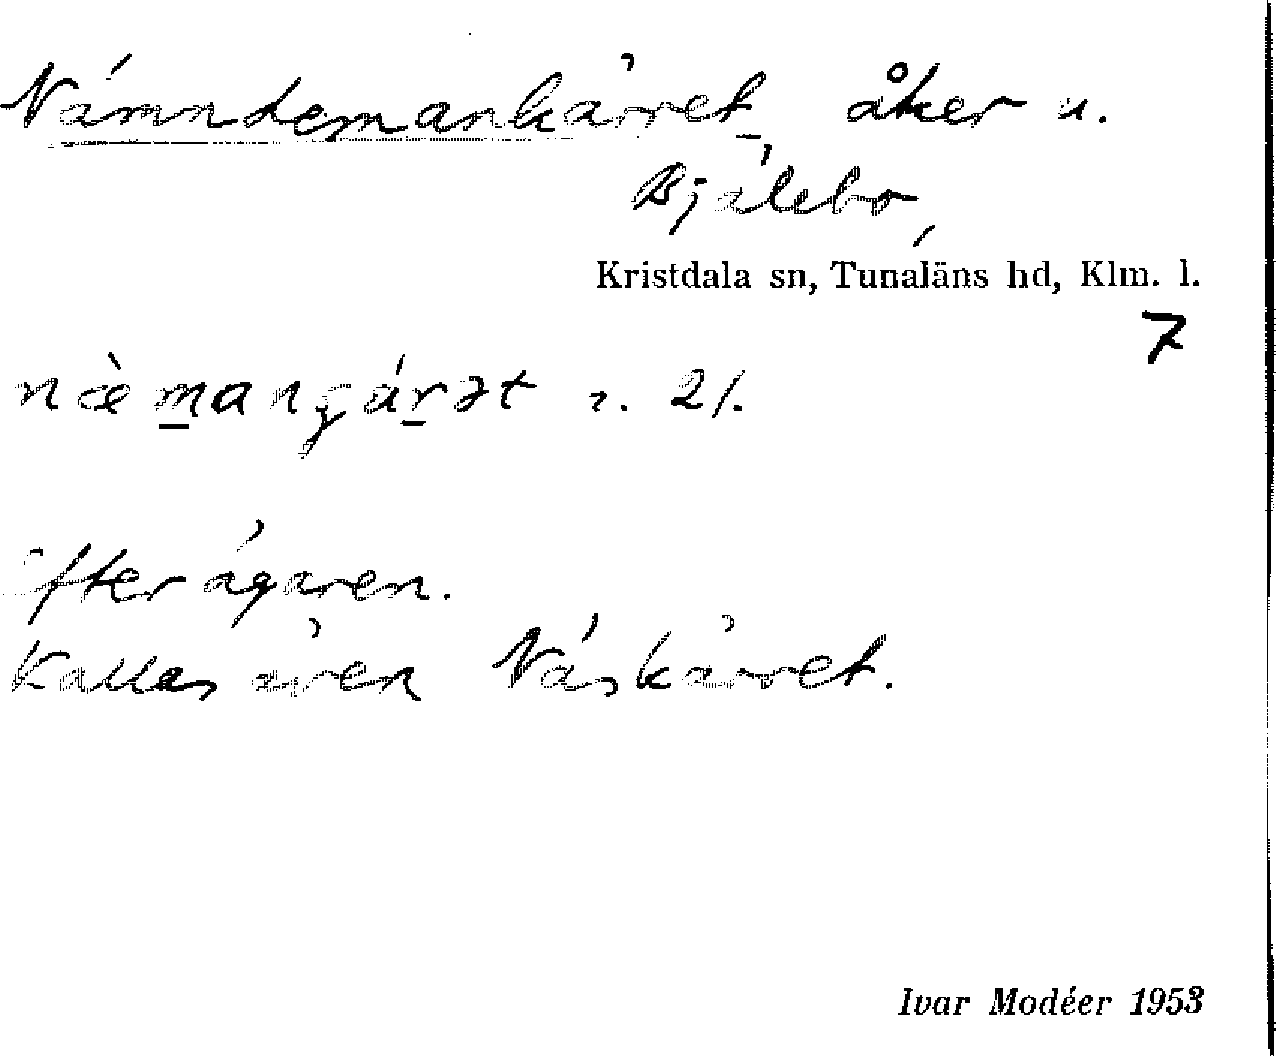 Nämndemankärret, åker u.
Bjälebo,
Kristdala sn, Tunaläns hd, Klm. l.
7
næ̀mangárət r. 21.
Efter ägaren.
Kallas även Näskärret.
Ivar Modéer 1953